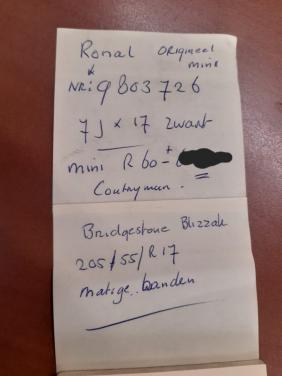 Ronal origineel
mini
NR: 9803726
7J x 17 zwart
mini R60 ±
Countryman.
Bridgestone Blizzak
205/55/R17
matige banden